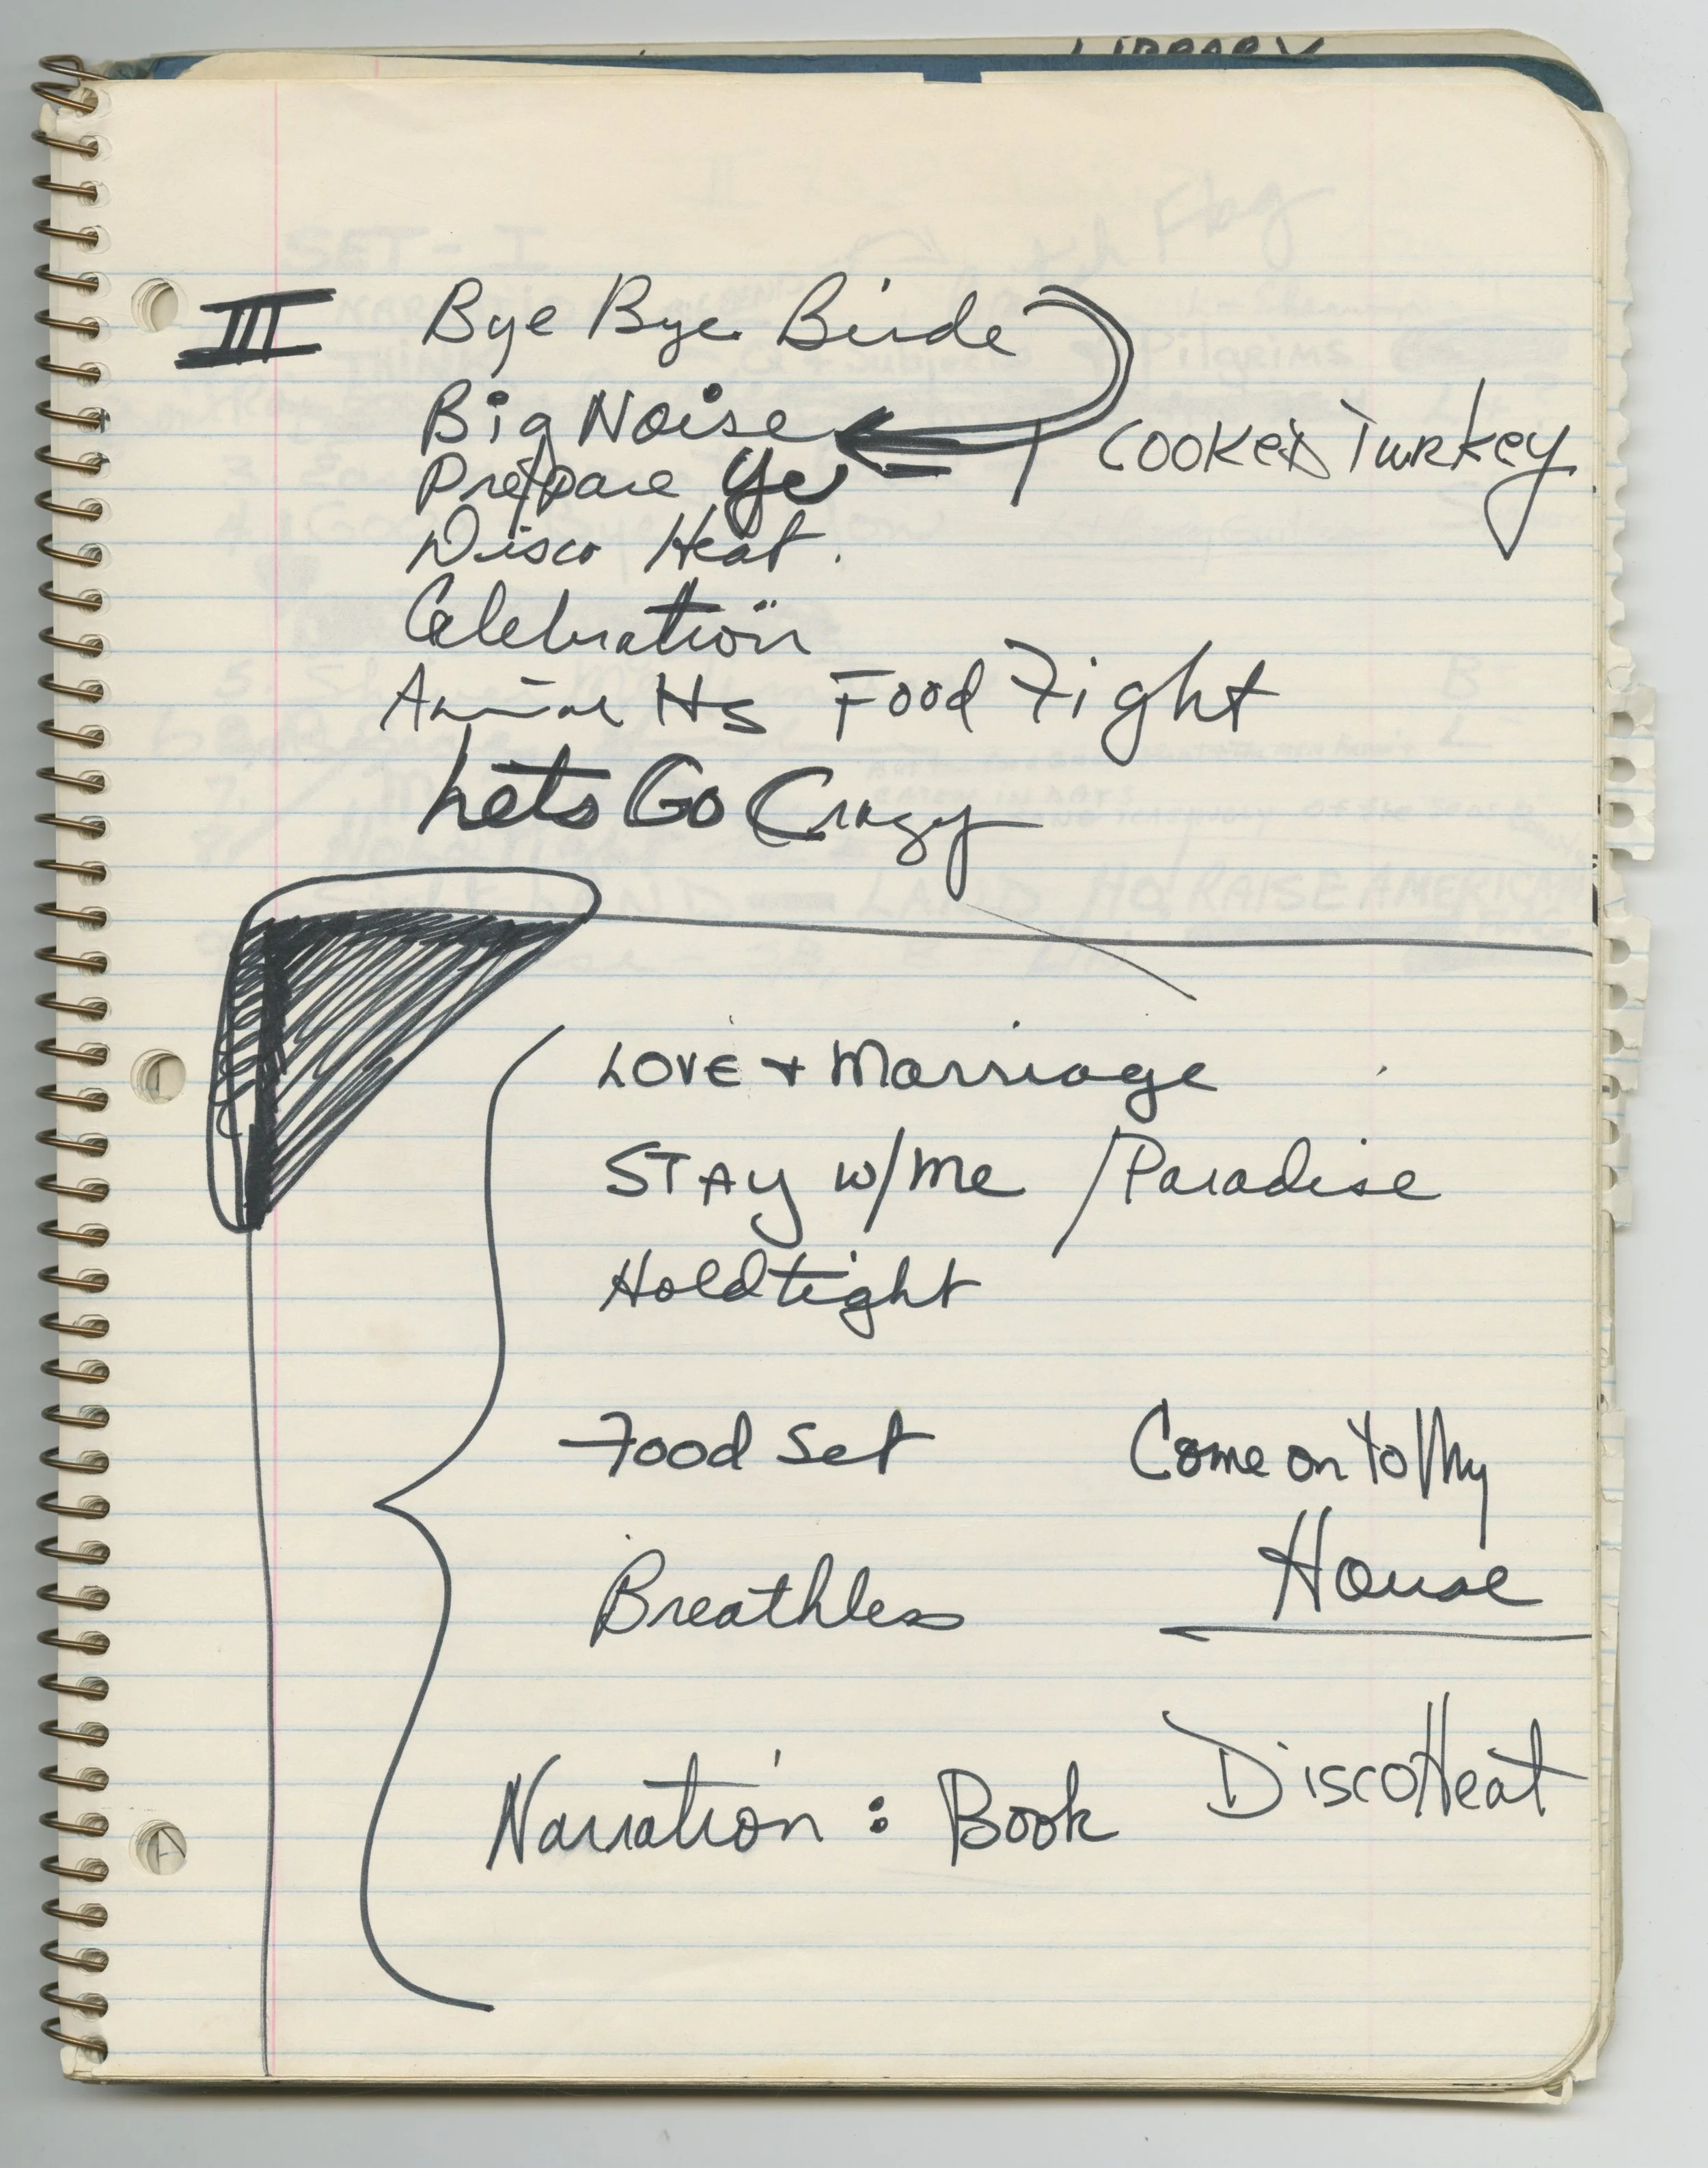 LIBRARY
III Bye Bye Birde
Big Noise
Cooked Turkey
Prepare Ye
Disco Heat.
Celebration
Animal Hs Food Fight
Lets Go Crazy
LOVE + Marriage
STAy w/Me / Paradise
Hold tight
Food Set
Come on to My
House
Breathless
Disco Heat
Narration : Book